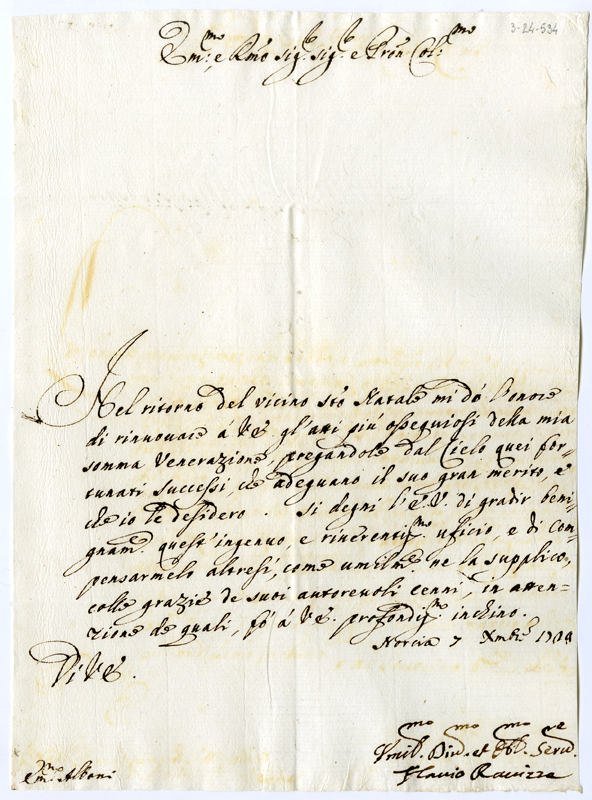 3-24-534
Em.mo e Rmo sig.r sig.r e Pron Col.mo
Nel ritorno del vicino sto Natale mi dó l'onore
di rinnovare á VE. gl'atti piú ossequiosi della mia
somma Venerazione, pregandole dal Cielo quei for-
tunati successi, che adeguano il suo gran merito, e
che io le desidero. Si degni l'E.V. di gradir beni-
gnam. quest'ingenuo, e riverentis.mo uficio, e di com-
pensarmelo altresí, come umilme ne la supplico,
colle grazie de suoi autorevoli cenni, in atten-
zione de quali, fó á VE. profondis.mo inchino.
Norcia 7 Xmbre
Di VE.
Vmil.mo Div.mo et Obl.mo Serv.re
Flavio
Em.mo Albani